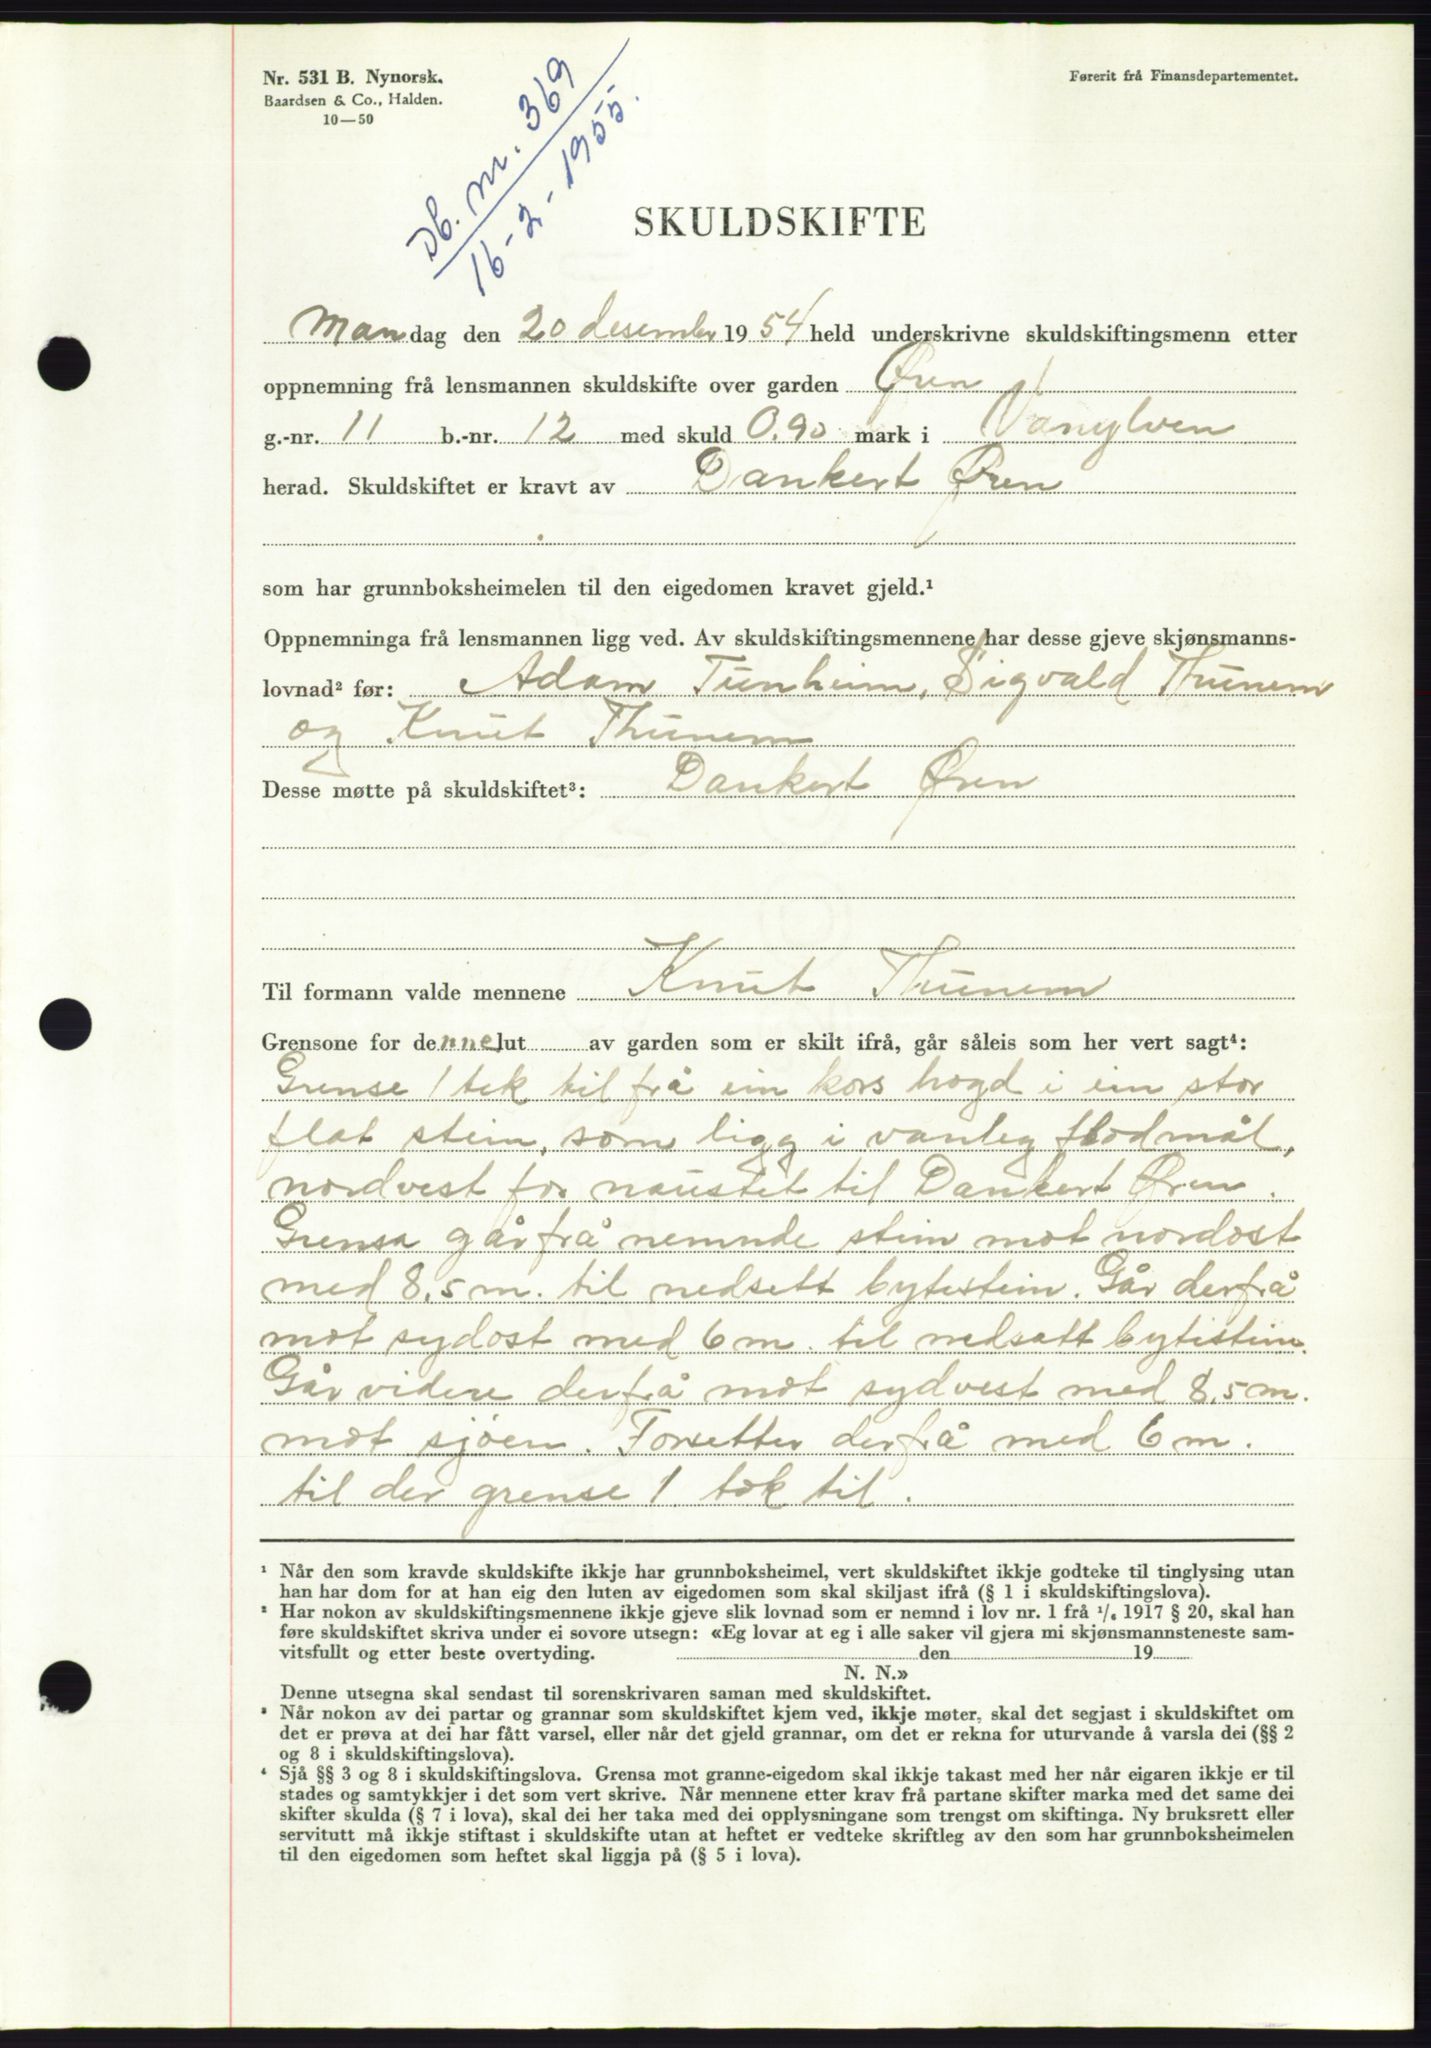 Nr. 531 B. Nynorsk.
Baardsen & Co., Halden.
10—50
Førerit frå Finansdepartementet.
Db. nr. 369
16-2-1955.
SKULDSKIFTE
Mandag den 20 desember 1954 held underskrivne skuldskiftingsmenn etter
oppnemning frå lensmannen skuldskifte over garden Øren
g.-nr. 11 b.-nr. 12 med skuld 0.90 mark i Vanylven
herad. Skuldskiftet er kravt av Dankert Øren
som har grunnboksheimelen til den eigedomen kravet gjeld.¹
Oppnemninga frå lensmannen ligg ved. Av skuldskiftingsmennene har desse gjeve skjønsmanns-
lovnad² før: Adam Tunheim, Sigvald Thunem
og Knut Thunem
Desse møtte på skuldskiftet³: Dankert Øren
Til formann valde mennene Knut Thunem
Grensone for dennelut av garden som er skilt ifrå, går såleis som her vert sagt⁴:
Grense 1 tek til frå ein kors hogd i ein stor
flat stein, som ligg i vanleg flodmål,
nordvest for naustet til Dankert Øren.
Grensa går frå nemnde stein mot nordost
med 8,5 m. til nedsett bytestein. Går derfrå
mot sydost med 6 m. til nedsatt bytistein.
Går videre derfrå mot sydvest med 8,5 m.
mot sjøen. Forsetter derfrå med 6 m.
til der grense 1 tok til.
¹ Når den som kravde skuldskifte ikkje har grunnboksheimel, vert skuldskiftet ikkje godteke til tinglysing utan
han har dom for at han eig den luten av eigedomen som skal skiljast ifrå (§ 1 i skuldskiftingslova).
² Har nokon av skuldskiftingsmennene ikkje gjeve slik lovnad som er nemnd i lov nr. 1 frå ¹/₆ 1917 § 20, skal han
føre skuldskiftet skriva under ei sovore utsegn: «Eg lovar at eg i alle saker vil gjera mi skjønsmannsteneste sam-
vitsfullt og etter beste overtyding. den 19
N. N.»
Denne utsegna skal sendast til sorenskrivaren saman med skuldskiftet.
³ Når nokon av dei partar og grannar som skuldskiftet kjem ved, ikkje møter, skal det segjast i skuldskiftet om
det er prøva at dei har fått varsel, eller når det gjeld grannar, om det er rekna for uturvande å varsla dei (§§ 2
og 8 i skuldskiftingslova).
⁴ Sjå §§ 3 og 8 i skuldskiftingslova. Grensa mot granne-eigedom skal ikkje takast med her når eigaren ikkje er til
stades og samtykkjer i det som vert skrive. Når mennene etter krav frå partane skifter marka med det same dei
skifter skulda (§ 7 i lova), skal dei her taka med dei opplysningane som trengst om skiftinga. Ny bruksrett eller
servitutt må ikkje stiftast i skuldskifte utan at heftet er vedteke skriftleg av den som har grunnboksheimelen
til den eigedomen som heftet skal liggja på (§ 5 i lova).